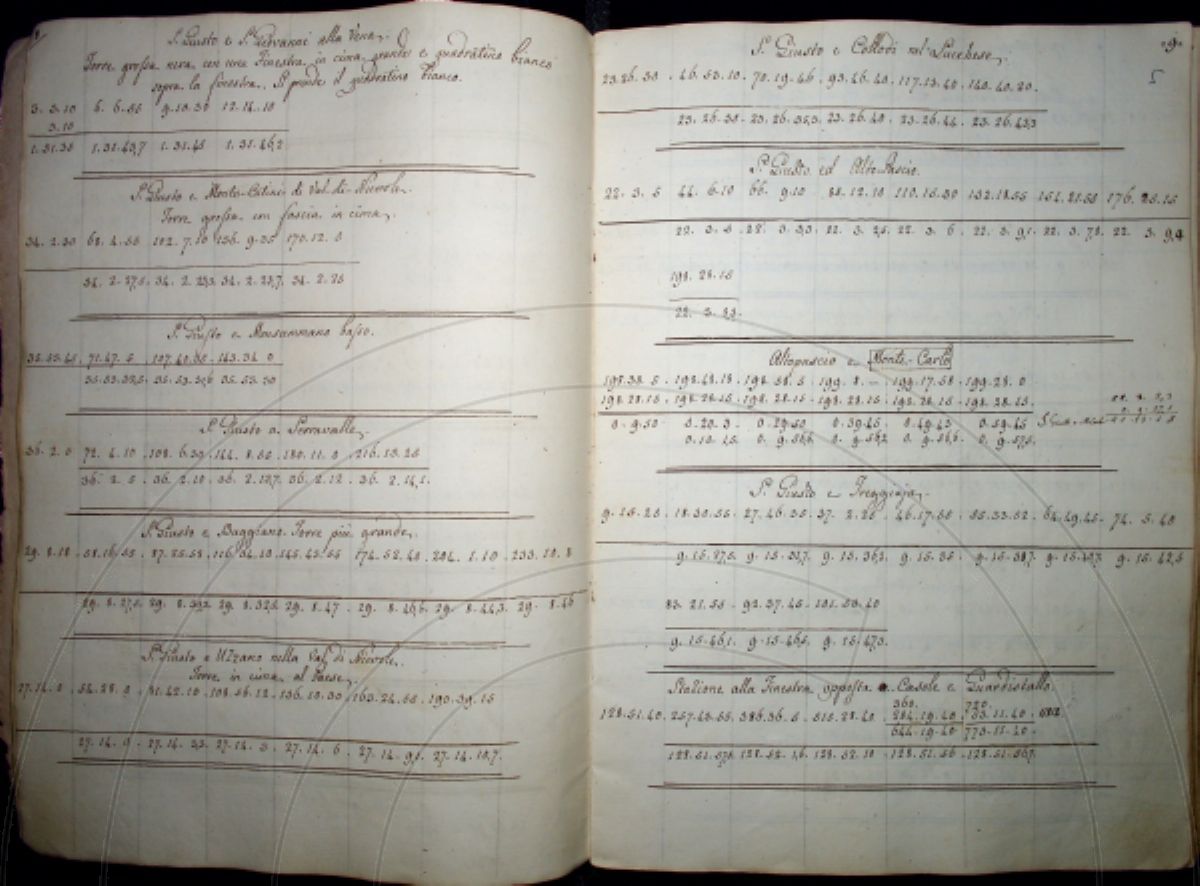 S. Giusto e S. Giovanni alla Vena.
Torre grossa nera con una Finestra in cima grande e quadratino bianco
sopra la finestra. Si prende il quadratino bianco.
3. 3.10 6. 6.55 9.10.30 12.14.10
3.10
1.31.35 1.31.43,7 1.31.45 1.31.46,2
S. Giusto e Monte-Catini di Val di Nievole.
Torre grossa con fascia in cima.
34. 2.30 68. 4.55 102. 7.10 136. 9.35 170.12. 5
34. 2.27,5 34. 2.23,3 34. 2.23,7 34. 2.25
S. Giusto e Monsummano basso.
35.53.45. 71.47. 5 . 107.40.35 . 143.34. 0
35.53.32,5. 35.53.31,6 35.53.30
S. Giusto a Serravalle.
36. 2. 0 72. 4.10 .108. 6.30 .144. 8.50 .180.11. 0 .216.13.25
36. 2. 5 . 36. 2.10 . 36. 2.12,7 36. 2.12 . 36. 2.14,1.
S. Giusto e Buggiano. Torre più grande.
29. 8.10 . 58.16.55 . 87.25.53 .116.34.10 .145.43.55 174.52.40 .204. 1.10 .233.10. 8
29. 8.27,5 29. 8.32,5 29. 8.47 . 29. 8.46,6 29. 8.44,3. 29. 8.46
S. Giusto e Uzzano nella Val di Nievole.
Torre in cima al Paese.
27.14. 0 . 54.28. 0 . 81.42.10 .108.56.12 .136.10.30 .163.24.55 .190.39.15
27.14. 0 . 27.14. 3,3 27.14. 3 . 27.14. 6 . 27.14. 9,1 27.14.10,7.
9.
S. Giusto e Collodi nel Lucchese.
23.26.30 . 46.53.10 . 70.19.46 . 93.46.40 .117.13.40 .140.40.20.
23.26.35 . 23.26.35,3 23.26.40 . 23.26.44 . 23.26.43,3
S. Giusto ed Alto-Pascio.
22. 3. 5 44. 6.10 66. 9.10 88.12.10 110.15.30 132.18.55 154.21.55 176.25.15
22. 3. 5 22. 3. 3,3 22. 3. 2,5 22. 3. 6 . 22. 3. 9,1. 22. 3. 7,8 22. 3. 9,4
198.28.15
22. 3. 8,3.
Altopascio e Monte-Carlo
198.38. 5 . 198.48.18 . 198.58. 5 . 199. 8. – . 199.17.58 . 199.28. 0
198.28.15 . 198.28.15 . 198.28.15 . 198.28.15 . 198.28.15 . 198.28.15.
0. 9.50 0.20. 3 . 0.29.50 0.39.45 0.49.43 0.59.45
0.10. 1,5 0. 9.56,6 0. 9.56,2 0. 9.56,6 . 0. 9.57,5.
S. Giusto e Treggiaja.
9.15.25 . 18.30.55 . 27.46.35 . 37. 2.25 . 46.17.55 . 55.33.52 . 64.49.45 . 74. 5.40
9.15.27,5 9.15.31,7. 9.15.36,2. 9.15.35 . 9.15.38,7 9.15.40,7 9.15.42,5
83.21.55 . 92.37.45 . 101.53.40
9.15.46,1. 9.15.46,5 9.15.47,3.
Stazione alla Finestra opposta a Casole e Guardistallo.
360. 720.
128.51.40. 257.43.55. 386.36. 5 . 515.28.40 . 284.19.40 . 53.11.40.
644.19.40 773.11.40.
128.51.57,5 128.52. 1,6 128.52.10 . 128.51.56 . 128.51.56,7.